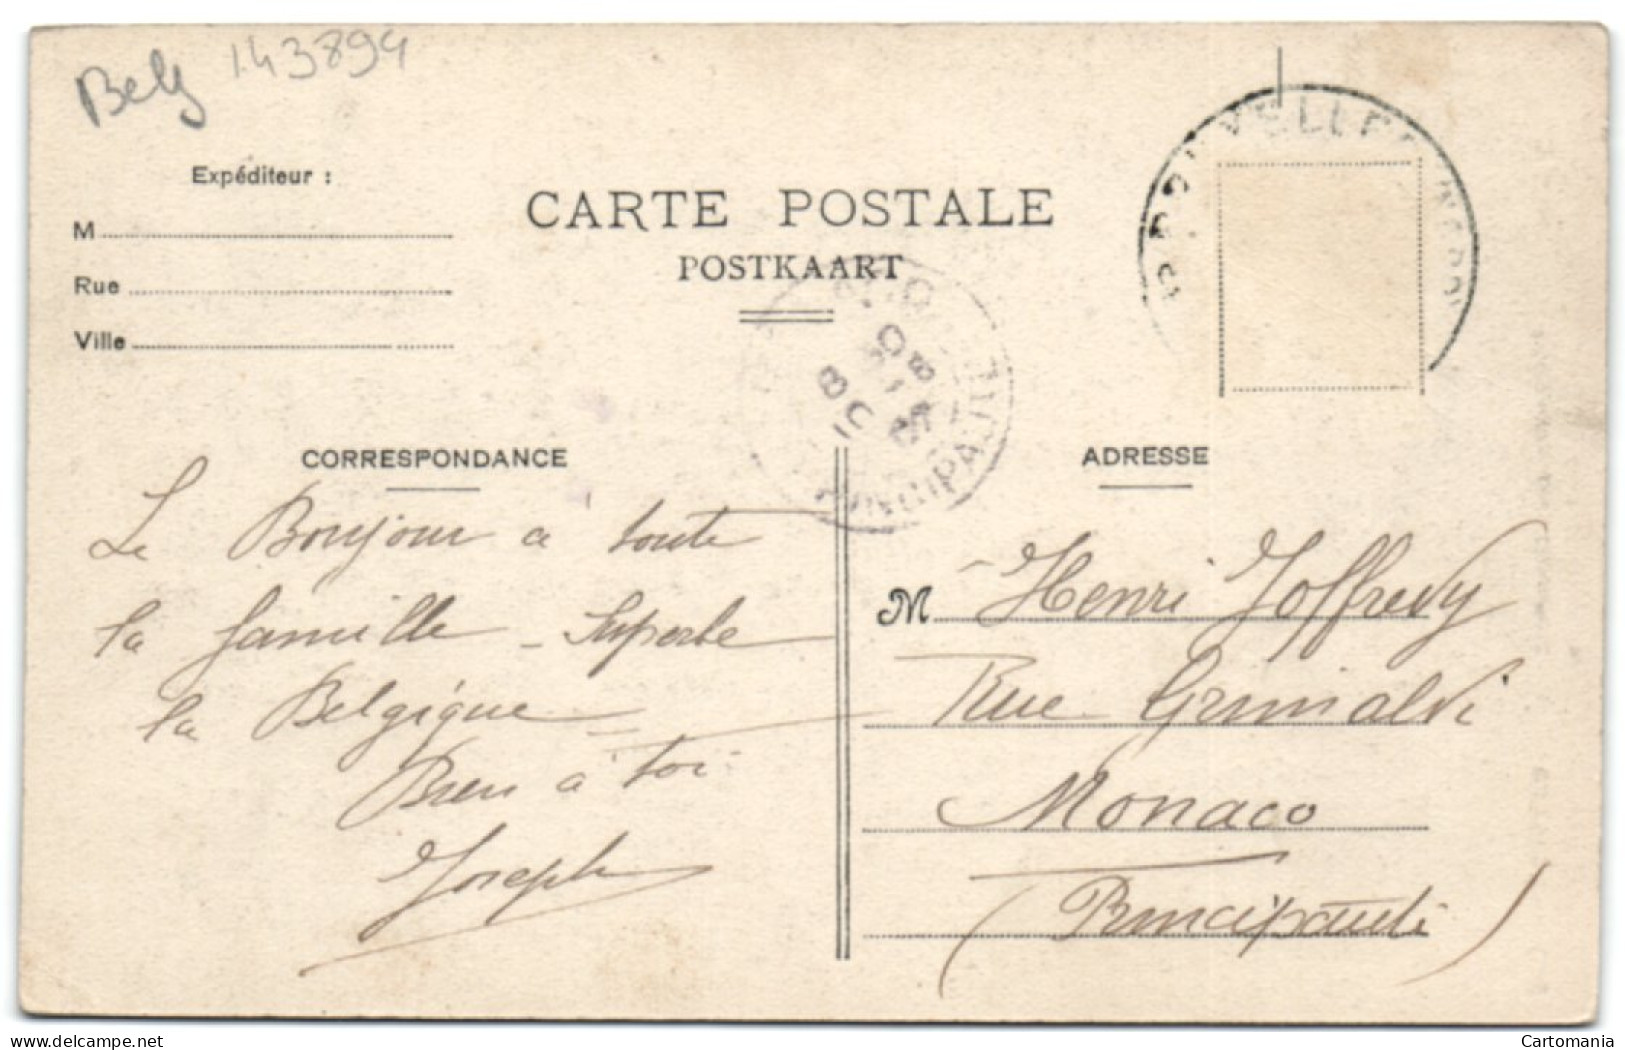 Belg 143894
Expéditeur :
M
Rue
Ville
CARTE POSTALE
POSTKAART
CORRESPONDANCE
ADRESSE
Le Bonjour à toute
la famille - Superbe
la Belgique
Bien à toi
Joseph
M Henri Joffredy
Rue Grimaldi
Monaco
(Principauté)
PRINCIPAUTE
delcampe.net
Cartomania